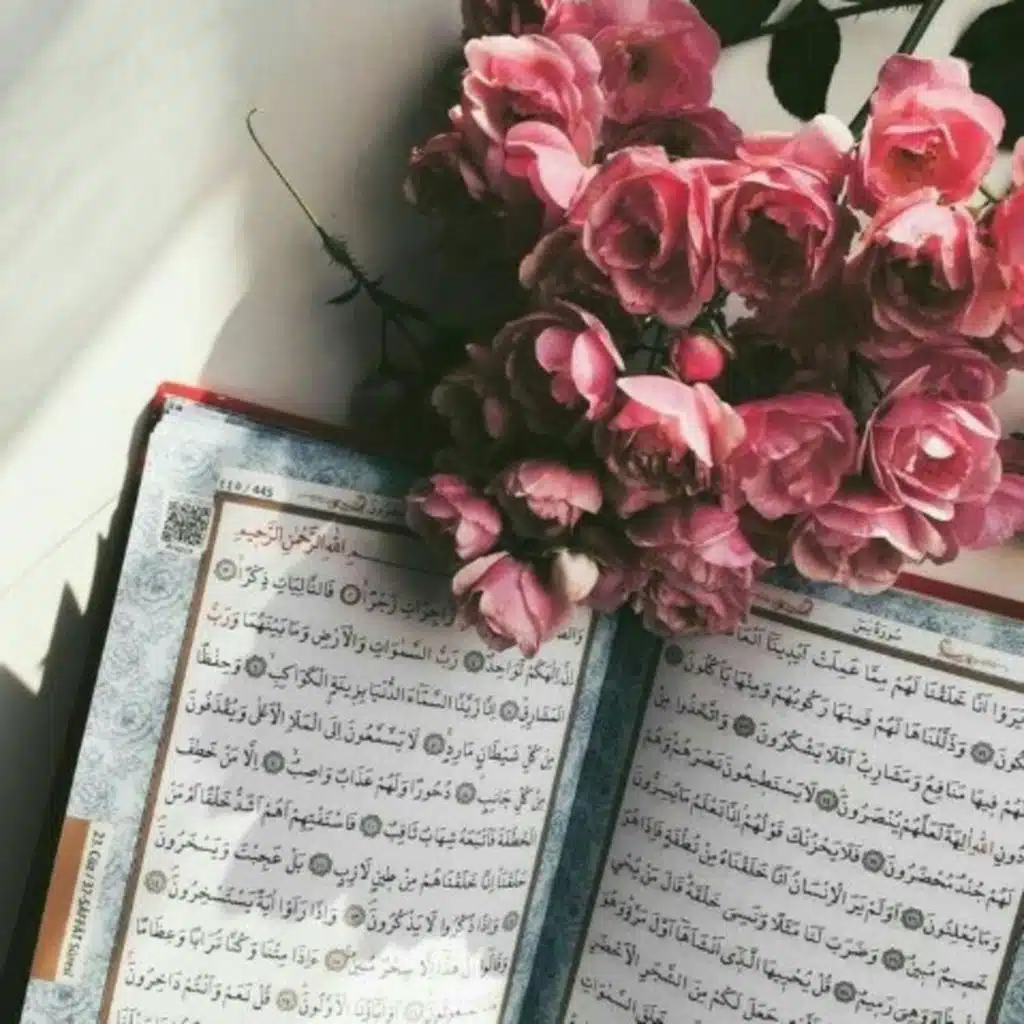 سُورَةُ يٰسٓ
خَلَقْنَا لَهُمْ مِمَّا عَمِلَتْ اَيْدِينَٓا
وَذَلَّلْنَاهَا لَهُمْ فَمِنْهَا رَكُوبُهُمْ وَمِنْهَا يَأْكُلُونَ
لَهُمْ فِيهَا مَنَافِعُ وَمَشَارِبُ اَفَلَا يَشْكُرُونَ وَاتَّخَذُوا مِنْ
دُونِ اللّٰهِ اٰلِهَةً لَعَلَّهُمْ يُنْصَرُونَ لَا يَسْتَطِيعُونَ نَصْرَهُمْ وَهُمْ
لَهُمْ جُنْدٌ مُحْضَرُونَ فَلَا يَحْزُنْكَ قَوْلُهُمْ اِنَّا نَعْلَمُ مَا يُسِرُّونَ
وَمَا يُعْلِنُونَ اَوَلَمْ يَرَ الْاِنْسَانُ اَنَّا خَلَقْنَاهُ مِنْ نُطْفَةٍ فَاِذَا هُوَ
خَصِيمٌ مُبِينٌ وَضَرَبَ لَنَا مَثَلًا وَنَسِيَ خَلْقَهُ قَالَ مَنْ يُحْيِي
وَهِيَ رَمِيمٌ قُلْ يُحْيِيهَا الَّذِٓي اَنْشَاَهَٓا اَوَّلَ مَرَّةٍ وَهُوَ
جَعَلَ لَكُمْ مِنَ الشَّجَرِ الْاَخْضَرِ
خَلَقَ السَّمٰوَاتِ
٤٤٥ / 445
اللّٰهِ الرَّحْمٰنِ الرَّحِيمِ
زَجْرًا فَالتَّالِيَاتِ ذِكْرًا
اِنَّ اِلٰهَكُمْ لَوَاحِدٌ رَبُّ السَّمٰوَاتِ وَالْاَرْضِ وَمَا بَيْنَهُمَا وَرَبُّ
الْمَشَارِقِ اِنَّا زَيَّنَّا السَّمَٓاءَ الدُّنْيَا بِزِينَةٍ الْكَوَاكِبِ وَحِفْظًا
مِنْ كُلِّ شَيْطَانٍ مَارِدٍ لَا يَسَّمَّعُونَ اِلَى الْمَلَأِ الْاَعْلٰى وَيُقْذَفُونَ
مِنْ كُلِّ جَانِبٍ دُحُورًا وَلَهُمْ عَذَابٌ وَاصِبٌ اِلَّا مَنْ خَطِفَ
الْخَطْفَةَ فَاَتْبَعَهُ شِهَابٌ ثَاقِبٌ فَاسْتَفْتِهِمْ اَهُمْ اَشَدُّ خَلْقًا اَمْ مَنْ
خَلَقْنَا اِنَّا خَلَقْنَاهُمْ مِنْ طِينٍ لَازِبٍ بَلْ عَجِبْتَ وَيَسْخَرُونَ
وَاِذَا ذُكِّرُوا لَا يَذْكُرُونَ وَاِذَا رَاَوْا اٰيَةً يَسْتَسْخِرُونَ
وَقَالُٓوا اِنْ هٰذَٓا اِلَّا سِحْرٌ مُبِينٌ ءَاِذَا مِتْنَا وَكُنَّا تُرَابًا وَعِظَامًا
اَوَاٰبَٓاؤُنَا الْاَوَّلُونَ قُلْ نَعَمْ وَاَنْتُمْ دَاخِرُونَ
23. Cüz 37-SÂFFÂT Sûresi